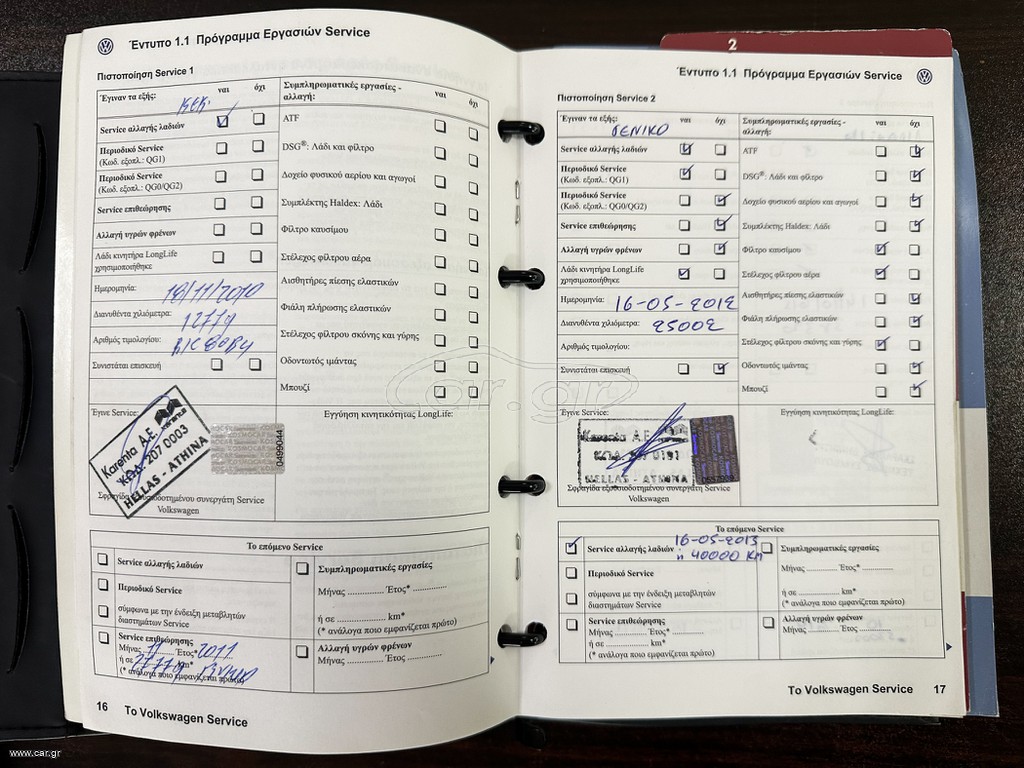 2
Έντυπο 1.1 Πρόγραμμα Εργασιών Service
Πιστοποίηση Service 1
Έγιναν τα εξής: ναι όχι
Service αλλαγής λαδιών
Περιοδικό Service
(Κωδ. εξοπλ.: QG1)
Περιοδικό Service
(Κωδ. εξοπλ.: QG0/QG2)
Service επιθεώρησης
Αλλαγή υγρών φρένων
Λάδι κινητήρα LongLife
χρησιμοποιήθηκε
Ημερομηνία: 18/11/2010
Διανυθέντα χιλιόμετρα: 12779
Αριθμός τιμολογίου:
Συνιστάται επισκευή
Συμπληρωματικές εργασίες -
αλλαγή: ναι όχι
ATF
DSG®: Λάδι και φίλτρο
Δοχείο φυσικού αερίου και αγωγοί
Συμπλέκτης Haldex: Λάδι
Φίλτρο καυσίμου
Στέλεχος φίλτρου αέρα
Αισθητήρες πίεσης ελαστικών
Φιάλη πλήρωσης ελαστικών
Στέλεχος φίλτρου σκόνης και γύρης
Οδοντωτός ιμάντας
Μπουζί
Έγινε Service:
Karenta A.E
ΚΩΔ. 207 0003
HELLAS - ATHINA
0499044
Σφραγίδα εξουσιοδοτημένου συνεργάτη Service
Volkswagen
Εγγύηση κινητικότητας LongLife:
Το επόμενο Service
Service αλλαγής λαδιών
Περιοδικό Service
σύμφωνα με την ένδειξη μεταβλητών
διαστημάτων Service
Service επιθεώρησης
Μήνας 11 Έτος* 2011
ή σε 27779 km*
(* ανάλογα ποιο εμφανίζεται πρώτο)
Συμπληρωματικές εργασίες
Μήνας ............. Έτος* .............
ή σε ........................ km*
(* ανάλογα ποιο εμφανίζεται πρώτο)
Αλλαγή υγρών φρένων
Μήνας ............. Έτος .............
16 Το Volkswagen Service
Έντυπο 1.1 Πρόγραμμα Εργασιών Service
Πιστοποίηση Service 2
Έγιναν τα εξής: ναι όχι
ΓΕΝΙΚΟ
Service αλλαγής λαδιών
Περιοδικό Service
(Κωδ. εξοπλ.: QG1)
Περιοδικό Service
(Κωδ. εξοπλ.: QG0/QG2)
Service επιθεώρησης
Αλλαγή υγρών φρένων
Λάδι κινητήρα LongLife
χρησιμοποιήθηκε
Ημερομηνία: 16-05-2012
Διανυθέντα χιλιόμετρα: 25002
Αριθμός τιμολογίου:
Συνιστάται επισκευή
Συμπληρωματικές εργασίες -
αλλαγή: ναι όχι
ATF
DSG®: Λάδι και φίλτρο
Δοχείο φυσικού αερίου και αγωγοί
Συμπλέκτης Haldex: Λάδι
Φίλτρο καυσίμου
Στέλεχος φίλτρου αέρα
Αισθητήρες πίεσης ελαστικών
Φιάλη πλήρωσης ελαστικών
Στέλεχος φίλτρου σκόνης και γύρης
Οδοντωτός ιμάντας
Μπουζί
Έγινε Service:
Karenta A.E
HELLAS - ATHINA
Σφραγίδα εξουσιοδοτημένου συνεργάτη Service
Volkswagen
Εγγύηση κινητικότητας LongLife:
Το επόμενο Service
Service αλλαγής λαδιών 16-05-2013
ή 40000 KM
Περιοδικό Service
σύμφωνα με την ένδειξη μεταβλητών
διαστημάτων Service
Service επιθεώρησης
Μήνας ............ Έτος* ............
ή σε ........................ km*
(* ανάλογα ποιο εμφανίζεται πρώτο)
Συμπληρωματικές εργασίες
Μήνας ............ Έτος* ............
ή σε ........................ km*
(* ανάλογα ποιο εμφανίζεται πρώτο)
Αλλαγή υγρών φρένων
Μήνας ............ Έτος ............
Το Volkswagen Service 17
car.gr
www.car.gr